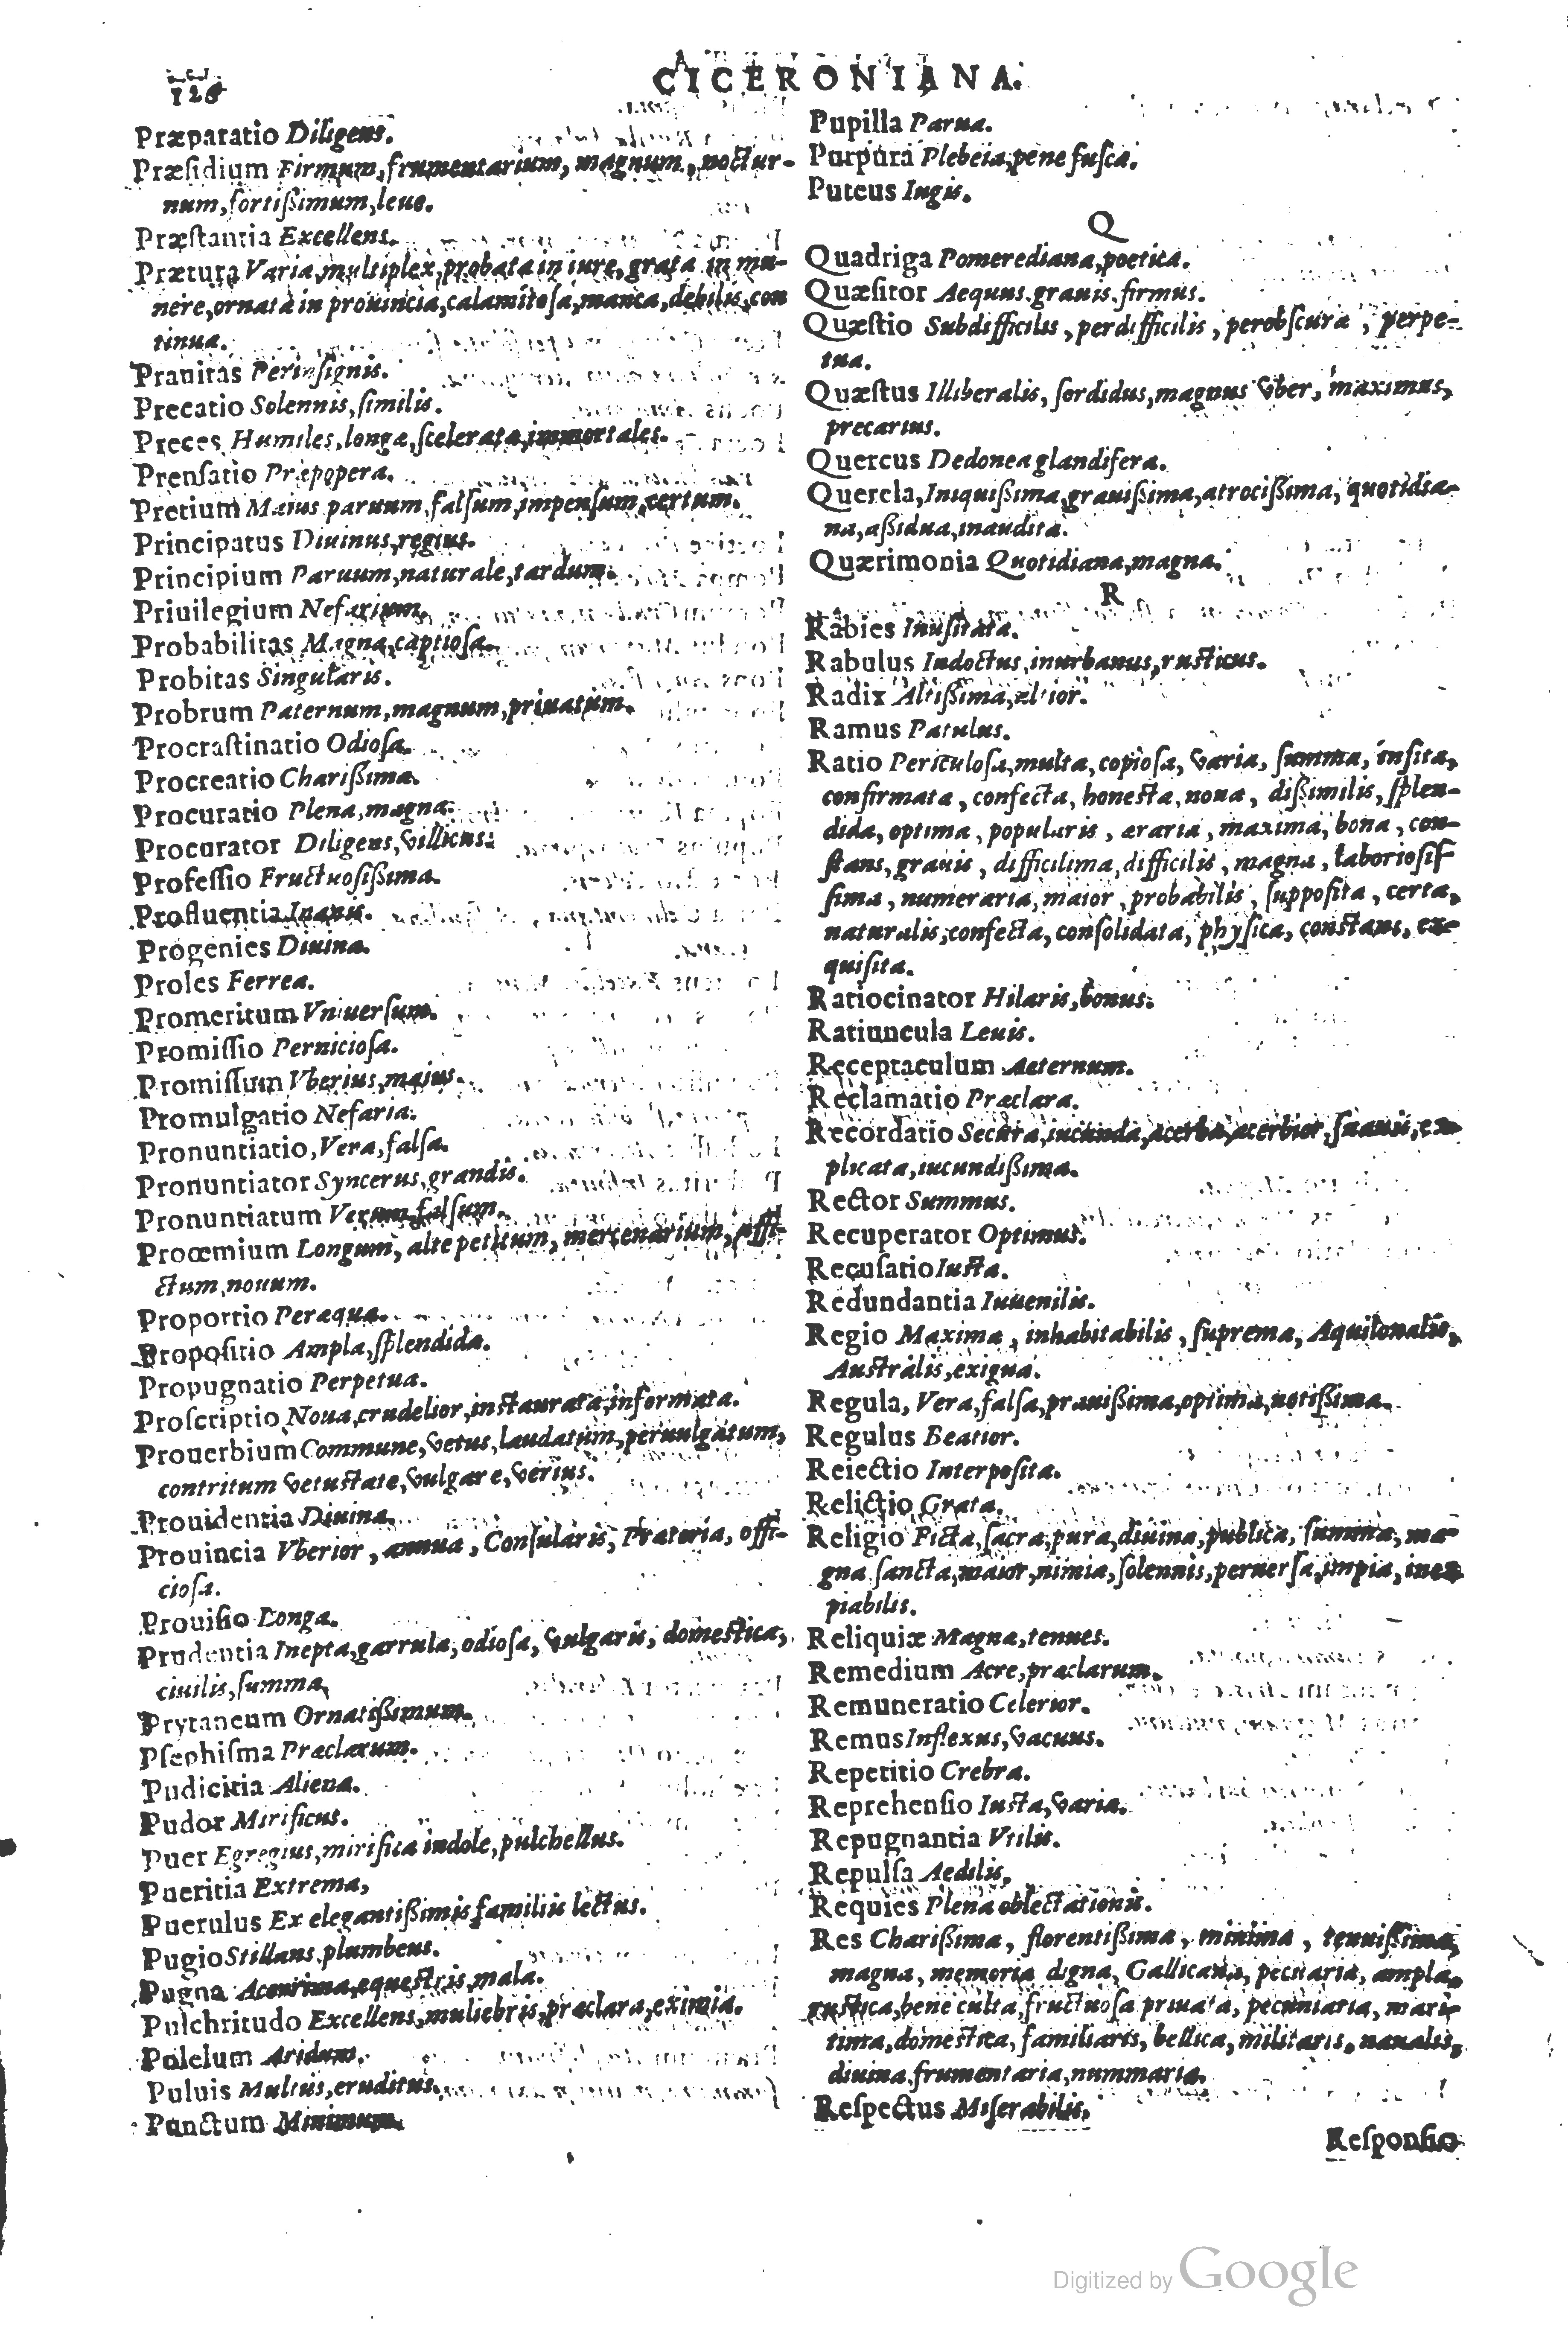 126
CICERONIANA.
Præparatio Diligens.
Præsidium Firmum, frumentarium, magnum, noctur-
num, fortißimum, leue.
Præstantia Excellens.
Prætura Varia, multiplex, probata in iure, grata in mu-
nere, ornata in prouincia, calamitosa, manca, debilis, con
tinua.
Prauitas Perinsignis.
Precatio Solennis, similis.
Preces Humiles, longæ, scelerata, immortales.
Prensatio Præpopera.
Pretium Maius paruum, falsum, impensum, certum.
Principatus Diuinus, regius.
Principium Paruum, naturale, tardum.
Priuilegium Nefarium.
Probabilitas Magna, captiosa.
Probitas Singularis.
Probrum Paternum, magnum, priuatum.
Procrastinatio Odiosa.
Procreatio Charißima.
Procuratio Plena, magna.
Procurator Diligens, villicus.
Professio Fructuosißima.
Profluentia Inanis.
Progenies Diuina.
Proles Ferrea.
Promeritum Vniuersum.
Promissio Perniciosa.
Promissum Vberius, maius.
Promulgatio Nefaria.
Pronuntiatio, Vera, falsa.
Pronuntiator Syncerus, grandis.
Pronuntiatum Verum, falsum.
Proœmium Longum, alte petitum, mercenarium, effi-
ctum, nouum.
Proportio Peræqua.
Propositio Ampla, splendida.
Propugnatio Perpetua.
Proscriptio Noua, crudelior, instaurata, informata.
Prouerbium Commune, vetus, laudatum, peruulgatum,
contritum vetustate, vulgare, verius.
Prouidentia Diuina.
Prouincia Vberior, annua, Consularis, Prætoria, offi-
ciosa.
Prouisio Longa.
Prudentia Inepta, garrula, odiosa, vulgaris, domestica,
ciuilis, summa,
Prytaneum Ornatißimum.
Psephisma Præclarum.
Pudicitia Aliena.
Pudor Mirificus.
Puer Egregius, mirifica indole, pulchellus.
Pueritia Extrema,
Puerulus Ex elegantißimis familiis lectus.
Pugio Stillans, plumbeus.
Pugna Acerrima, equestris, mala.
Pulchritudo Excellens, muliebris, præclara, eximia.
Pulelum Aridum.
Puluis Multus, eruditus.
Punctum Minimum.
Pupilla Parua.
Purpura Plebeia, pene fusca.
Puteus Iugis.
Q
Quadriga Pomerediana, poetica.
Quæsitor Aequus, grauis, firmus.
Quæstio Subdifficilis, perdifficilis, perobscura, perpe-
tua.
Quæstus Illiberalis, sordidus, magnus vber, maximus,
precarius.
Quercus Dedonea glandifera.
Querela, Iniquißima, grauißima, atrocißima, quotidia-
na, aßidua, inaudita.
Quærimonia Quotidiana, magna.
R
Rabies Inusitata.
Rabulus Indoctus, inurbanus, rusticus.
Radix Altißima, altior.
Ramus Patulus.
Ratio Periculosa, multa, copiosa, varia, summa, insita,
confirmata, confecta, honesta, noua, dißimilis, splen-
dida, optima, popularis, æraria, maxima, bona, con-
stans, grauis, difficilima, difficilis, magna, laboriosis
sima, numeraria, maior, probabilis, supposita, certa,
naturalis, confecta, consolidata, physica, constans, ex-
quisita.
Ratiocinator Hilaris, bonus.
Ratiuncula Leuis.
Receptaculum Aeternum.
Reclamatio Præclara.
Recordatio Secura, iucunda, acerba, acerbior, suauis, ex-
plicata, iucundißima.
Rector Summus.
Recuperator Optimus.
Recusatio Iusta.
Redundantia Iuuenilis.
Regio Maxima, inhabitabilis, suprema, Aquilonalis,
Australis, exigua.
Regula, Vera, falsa, prauißima, optima, notißima.
Regulus Beatior.
Reiectio Interposita.
Relictio Grata.
Religio Ficta, sacra, pura, diuina, publica, summa, ma-
gna sancta, maior, nimia, solennis, peruersa, impia, inex
piabilis.
Reliquiæ Magna, tenues.
Remedium Acre, præclarum.
Remuneratio Celerior.
Remus Inflexus, vacuus.
Repetitio Crebra.
Reprehensio Iusta, varia.
Repugnantia Vtilis.
Repulsa Aedilis,
Requies Plena oblectationis.
Res Charißima, florentißima, minima, tenuißima,
magna, memoria digna, Gallicana, pecuaria, ampla,
rustica, bene culta, fructuosa priuata, pecuniaria, mari-
tima, domestica, familiaris, bellica, militaris, naualis,
diuina, frumentaria, nummaria.
Respectus Miserabilis,
Responsio
Digitized by Google